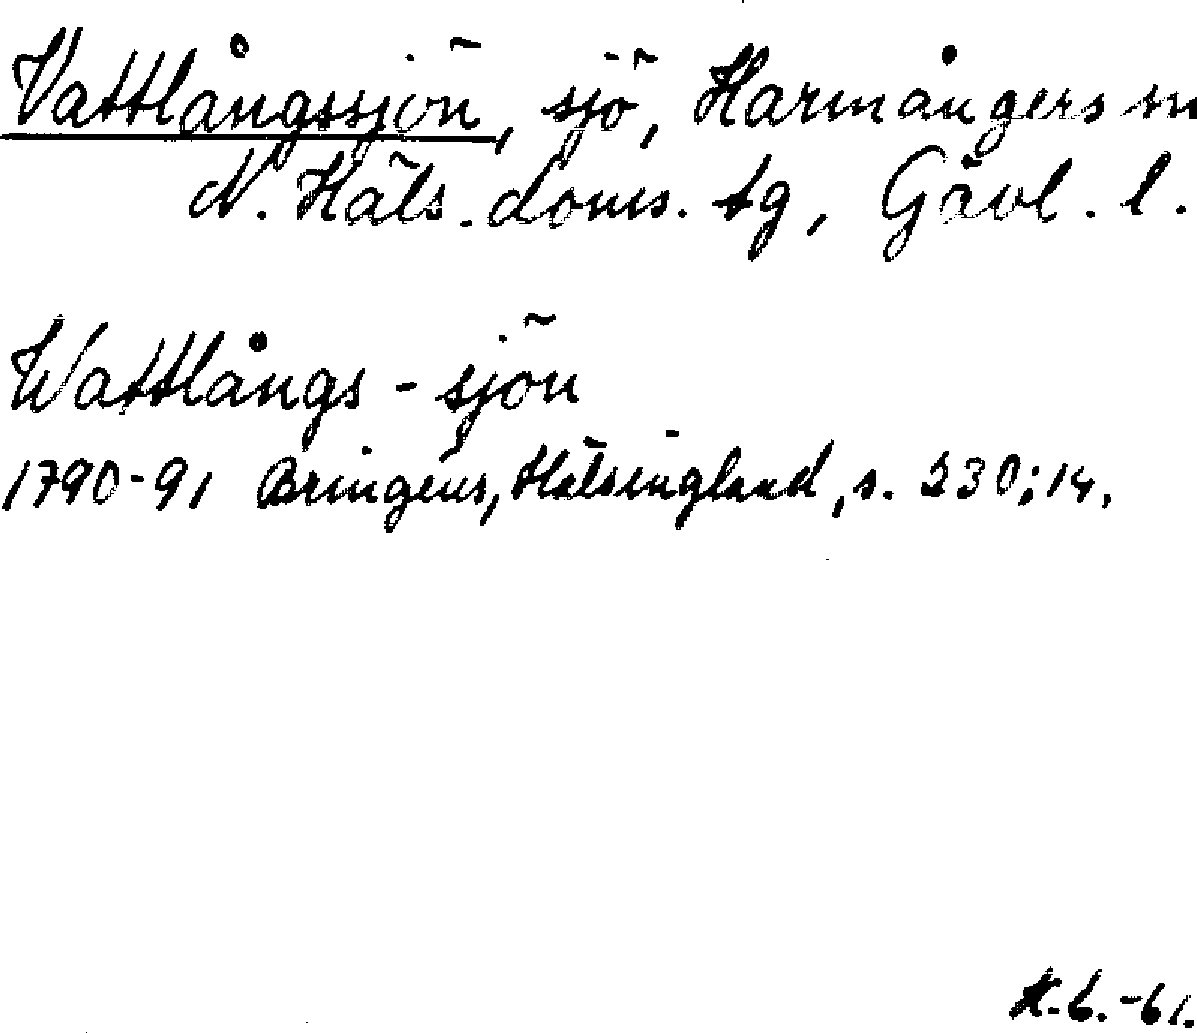 Vattlångssjön, sjö, Harmångers sn
N. Häls. doms. tg, Gävl. l.
Wattlångs-sjön
1790-91 Bringéus, Hälsingland, s. 230; 14.
K.G.-61.